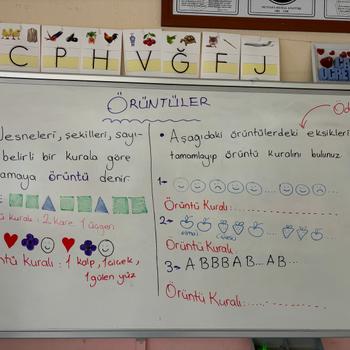 C P H V Ğ F J
ÖRÜNTÜLER
Nesneleri, şekilleri, sayı-
belirli bir kurala göre
amaya örüntü denir.
kuralı: 2 kare 1 üçgen
ntü Kuralı: 1 kalp, 1 çiçek,
1 gülen yüz
• Aşağıdaki örüntülerdeki eksikleri
tamamlayıp örüntü kuralını bulunuz
Öd
1-
Örüntü Kuralı:
2-
elma çilek
Örüntü Kuralı:
3- A B B B A B... A B...
Örüntü Kuralı: